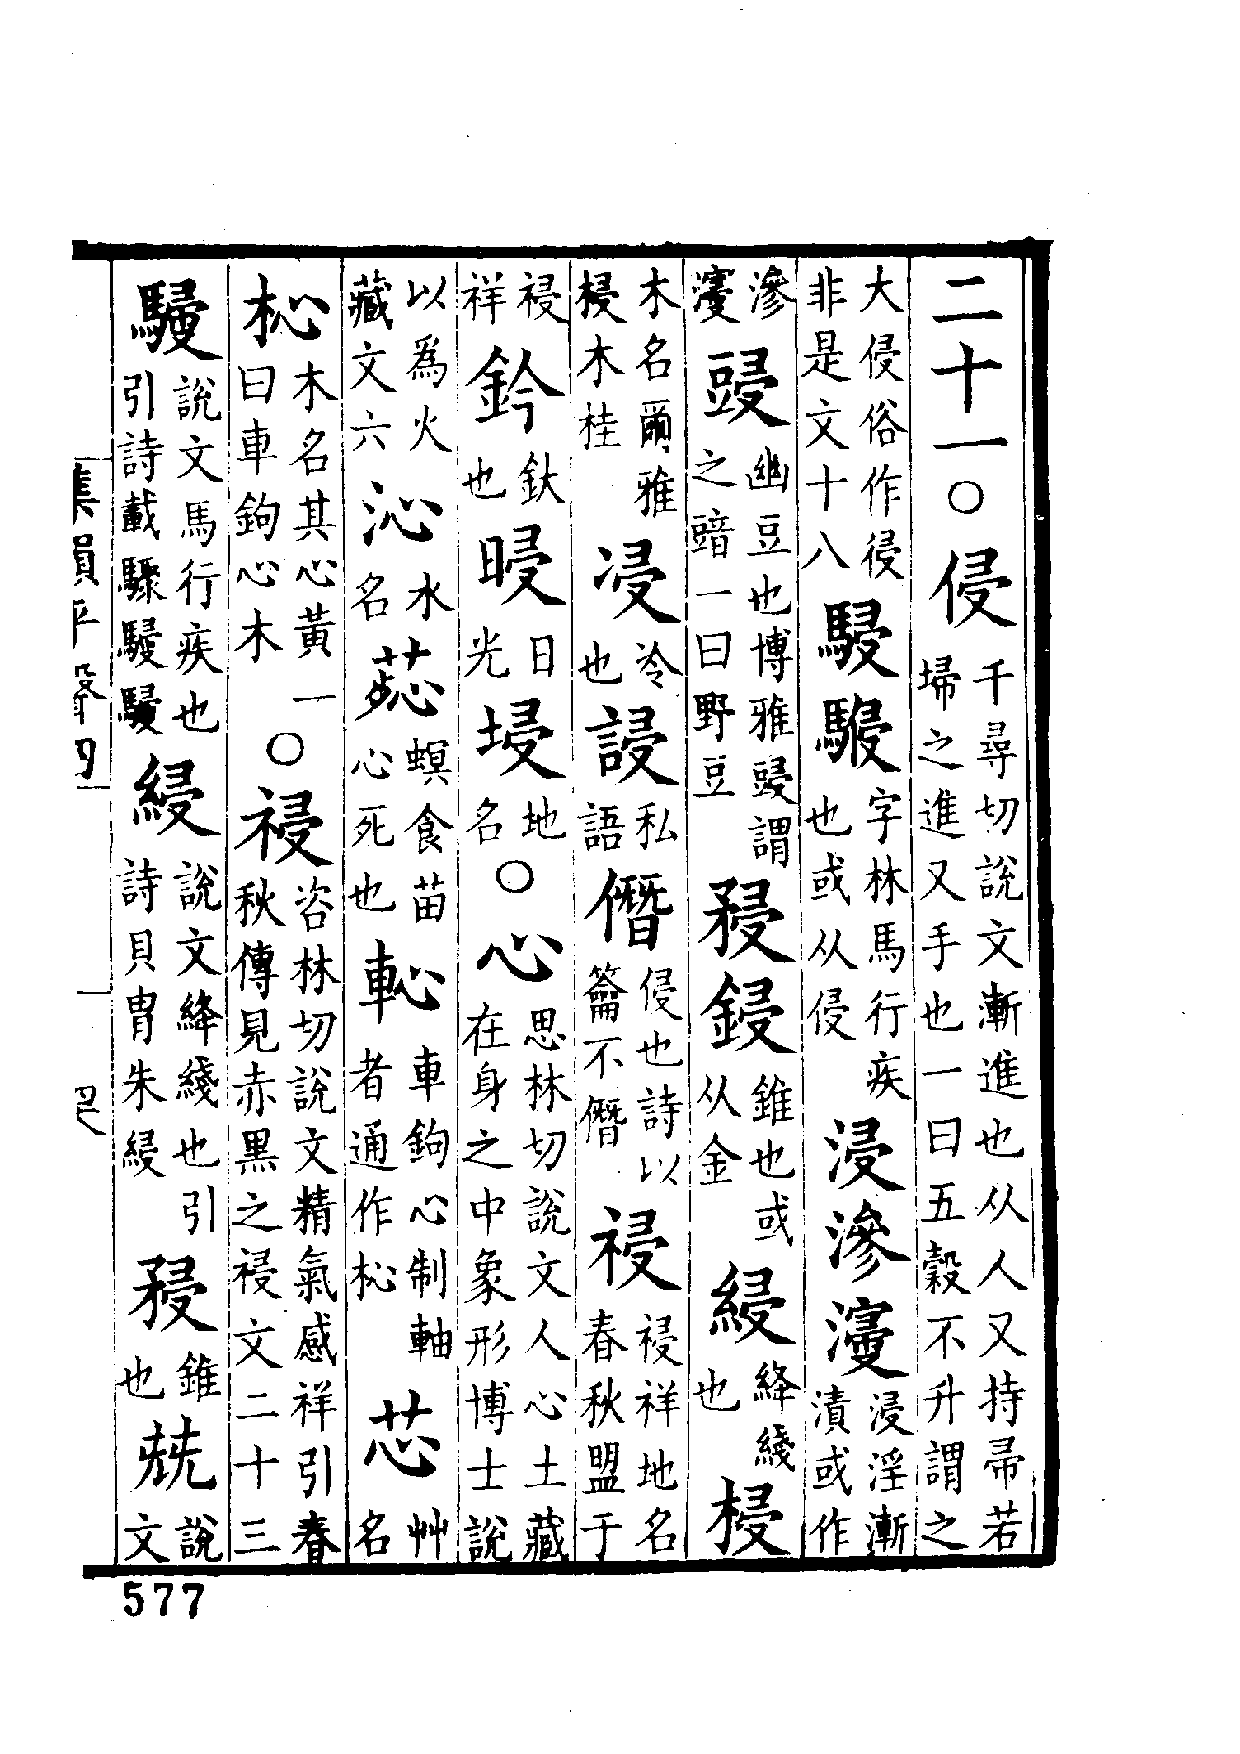 二十一○侵千尋切說文漸進也从人又持帚若埽之進又手也一曰五穀不升謂之
大侵俗作侵非是文十八駸䮿字林馬行疾也或从侵浸滲濅浸淫漸漬或作
滲寖䜅幽豆也博雅䜅謂之䜾一曰野豆䂄鋟錐也或从金綅絳綫也梫
木名爾雅梫木桂㓎冷也䛸私語僭侵也詩以籥不僭祲祲祥地名春秋盟于
祲祥鈐鈦也㬗日光埐地名○心思林切說文人心土藏在身之中象形博士說
以爲火藏文六沁水名蕊螟食苗心死也䡔車鉤心制軸者通作杺芯艸名
杺木名其心黃一曰車鉤心木○祲咨林切說文精氣感祥引春秋傳見赤黑之祲文二十三
駸說文馬行疾也引詩載驟駸駸綅說文絳綫也引詩貝冑朱綅䂄錐也兓說文
集韻平聲四
577